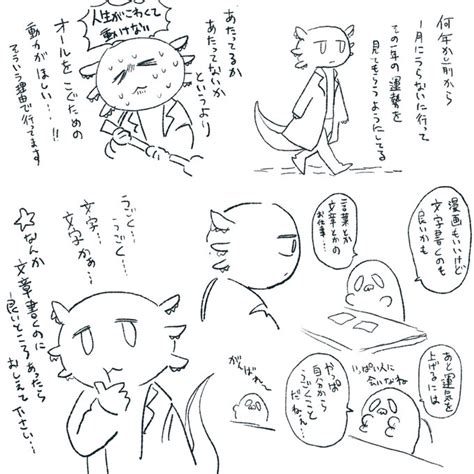 何年か前から
1月にうらないに行って
その1年の運勢を
見てもらうようにしてる
人生がこわくて
動けない
あたってるか
あたってないか
というより
オールをこぐための
動力がほしい…!!
って理由で行ってます
漫画もいいけど
文字書くのも
良いかも
言葉とか
文章とかの
お仕事…
あと運勢を
上げるには
いっぱい人に
会いなね
やっぱ
自分から
うごくこと
だねぇ
がんばれ〜
うごく…
うごく…
文字…
文字かぁ…
☆なんか文章書くのに
良いところあったら
おしえて下さい…